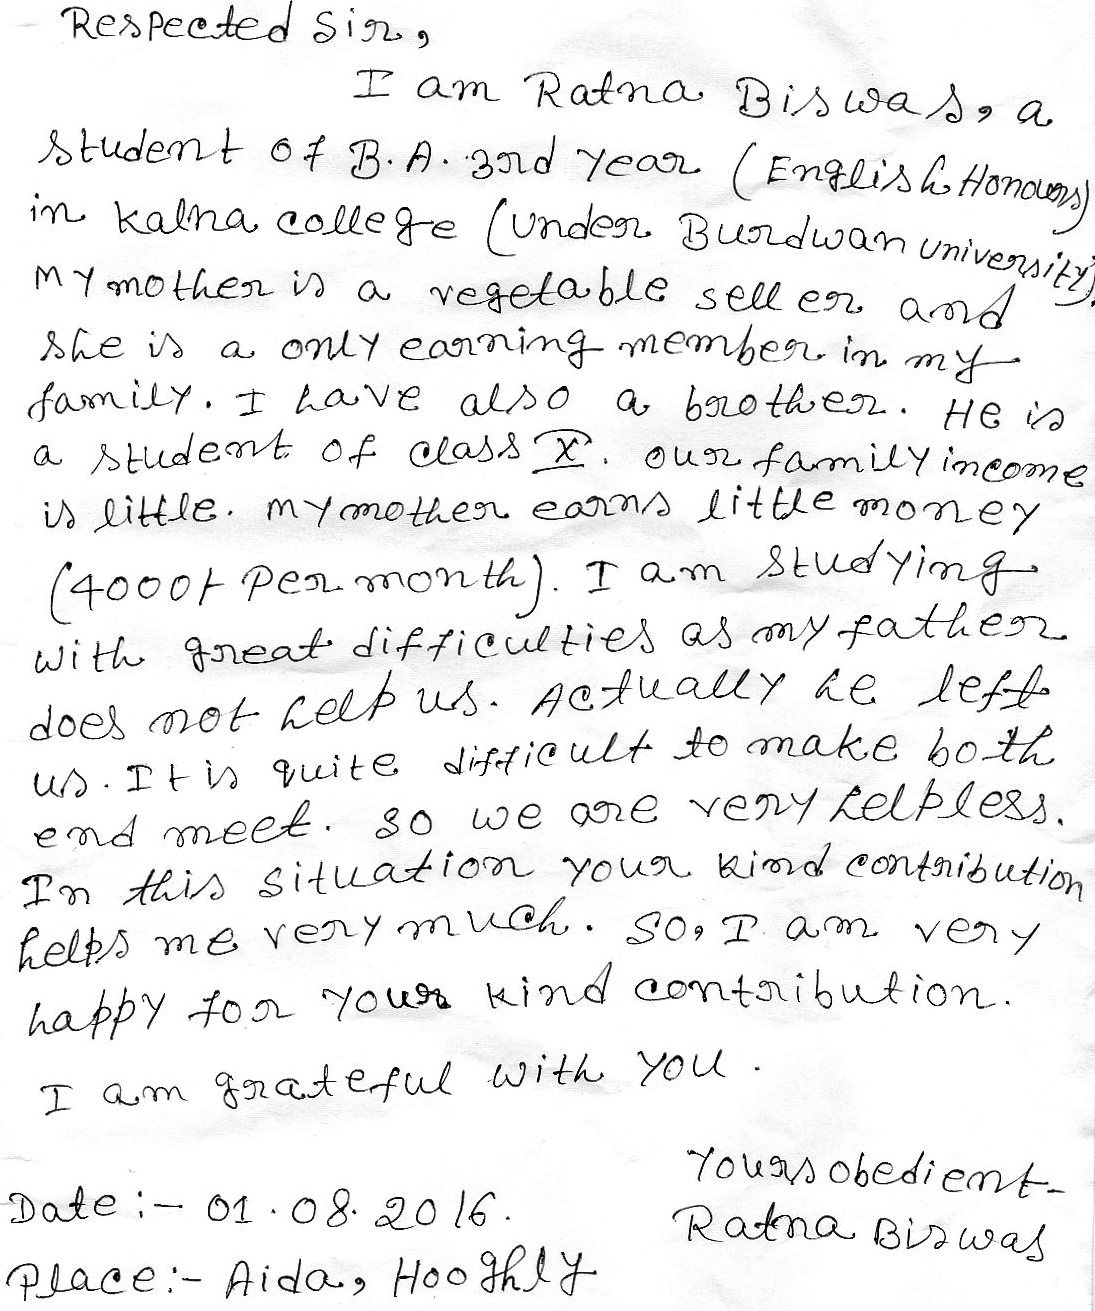 Respected Sir,
I am Ratna Biswas, a
student of B.A. 3rd year (English Honours)
in Kalna college (under Burdwan university).
My mother is a vegetable seller and
she is a only earning member in my
family. I have also a brother. He is
a student of class X. our family income
is little. My mother earns little money
(4000/- Per month). I am studying
with great difficulties as my father
does not help us. Actually he left
us. It is quite difficult to make both
end meet. so we are very helpless.
In this situation your kind contribution
helps me very much. So, I am very
happy for your kind contribution.
I am grateful with you.
Yours obedient-
Ratna Biswas
Date:- 01.08.2016.
Place:- Aida, Hooghly